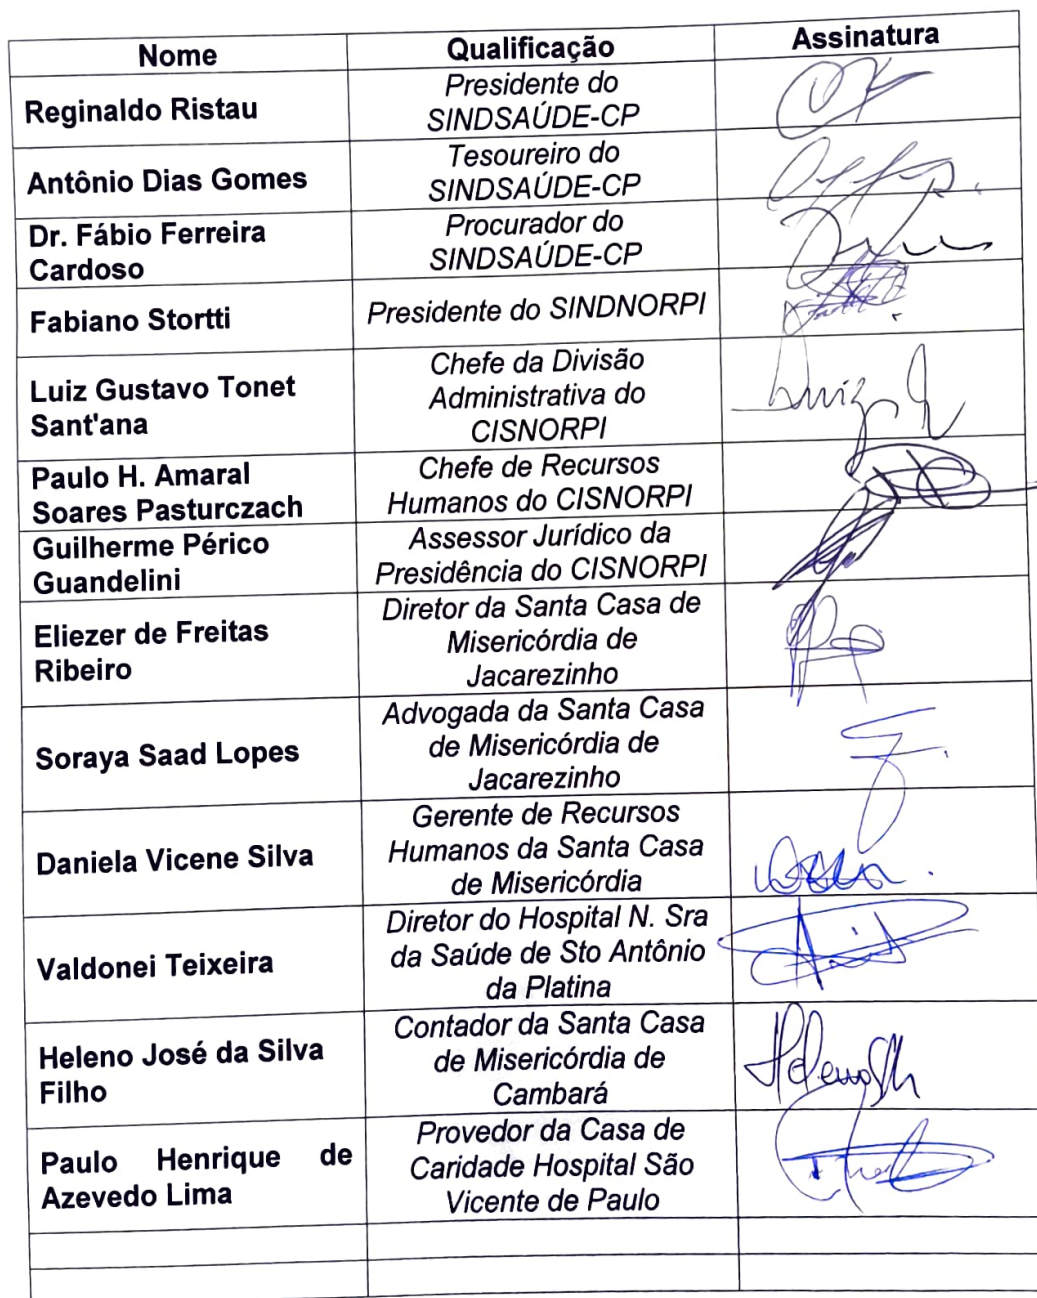 Nome Qualificação Assinatura
Reginaldo Ristau
Presidente do
SINDSAÚDE-CP
Antônio Dias Gomes
Tesoureiro do
SINDSAÚDE-CP
Dr. Fábio Ferreira
Cardoso
Procurador do
SINDSAÚDE-CP
Fabiano Stortti
Presidente do SINDNORPI
Luiz Gustavo Tonet
Sant'ana
Chefe da Divisão
Administrativa do
CISNORPI
Luiz
Paulo H. Amaral
Soares Pasturczach
Chefe de Recursos
Humanos do CISNORPI
Guilherme Périco
Guandelini
Assessor Jurídico da
Presidência do CISNORPI
Eliezer de Freitas
Ribeiro
Diretor da Santa Casa de
Misericórdia de
Jacarezinho
Soraya Saad Lopes
Advogada da Santa Casa
de Misericórdia de
Jacarezinho
Daniela Vicene Silva
Gerente de Recursos
Humanos da Santa Casa
de Misericórdia
Valdonei Teixeira
Diretor do Hospital N. Sra
da Saúde de Sto Antônio
da Platina
Heleno José da Silva
Filho
Contador da Santa Casa
de Misericórdia de
Cambará
Paulo Henrique de
Azevedo Lima
Provedor da Casa de
Caridade Hospital São
Vicente de Paulo